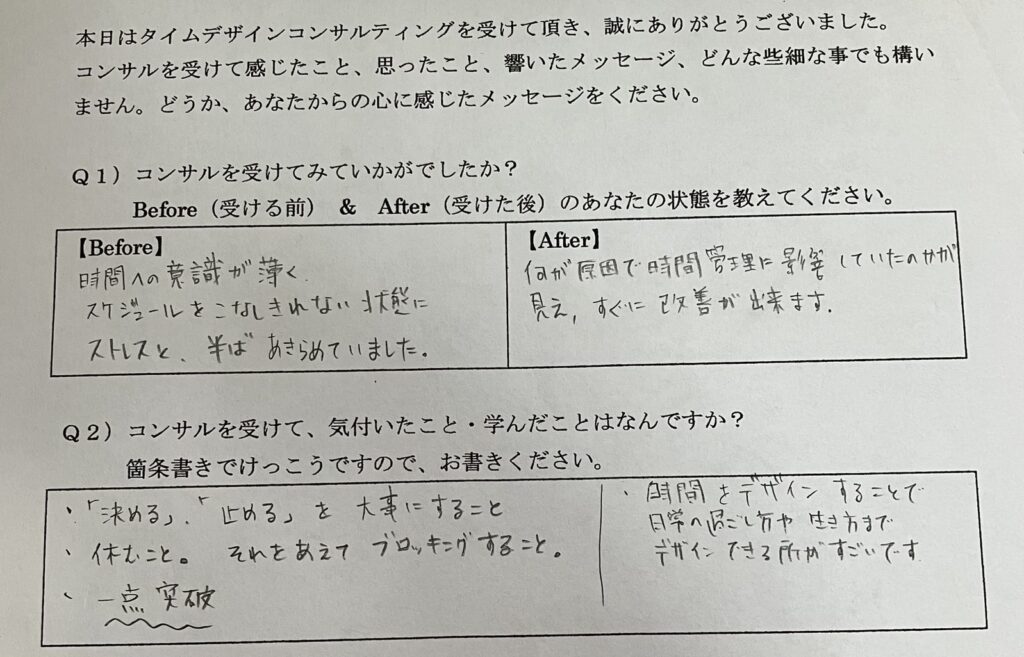 本日はタイムデザインコンサルティングを受けて頂き、誠にありがとうございました。
コンサルを受けて感じたこと、思ったこと、響いたメッセージ、どんな些細な事でも構い
ません。どうか、あなたからの心に感じたメッセージをください。
Q1）コンサルを受けてみていかがでしたか？
Before（受ける前） & After（受けた後）のあなたの状態を教えてください。
【Before】
時間への意識が薄く
スケジュールをこなしきれない状態に
ストレスと、半ばあきらめていました。
【After】
何が原因で時間管理に影響していたのかが
見え、すぐに改善が出来ます.
Q2）コンサルを受けて、気付いたこと・学んだことはなんですか？
箇条書きでけっこうですので、お書きください。
・「決める」、「止める」を大事にすること
・休むこと。それをあえてブロッキングすること。
・一点突破
・時間をデザインすることで
日常の過ごし方や生き方まで
デザインできる所がすごいです